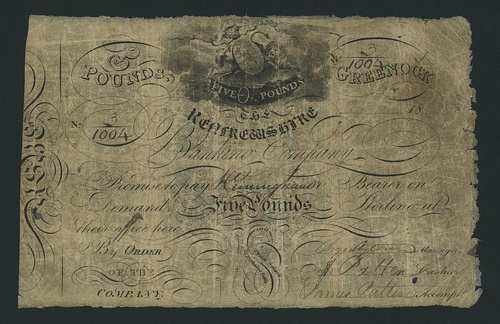 POUNDS,
FIVE POUNDS
GREENOCK
3
1004
THE
RENFREWSHIRE
No. 3
1004
18
Banking Company
Promise to pay Bearer on
Demand, Five Pounds Sterling, at
their office here
By ORDER
OF THE
COMPANY.
Manager
Cashier
James Accompt